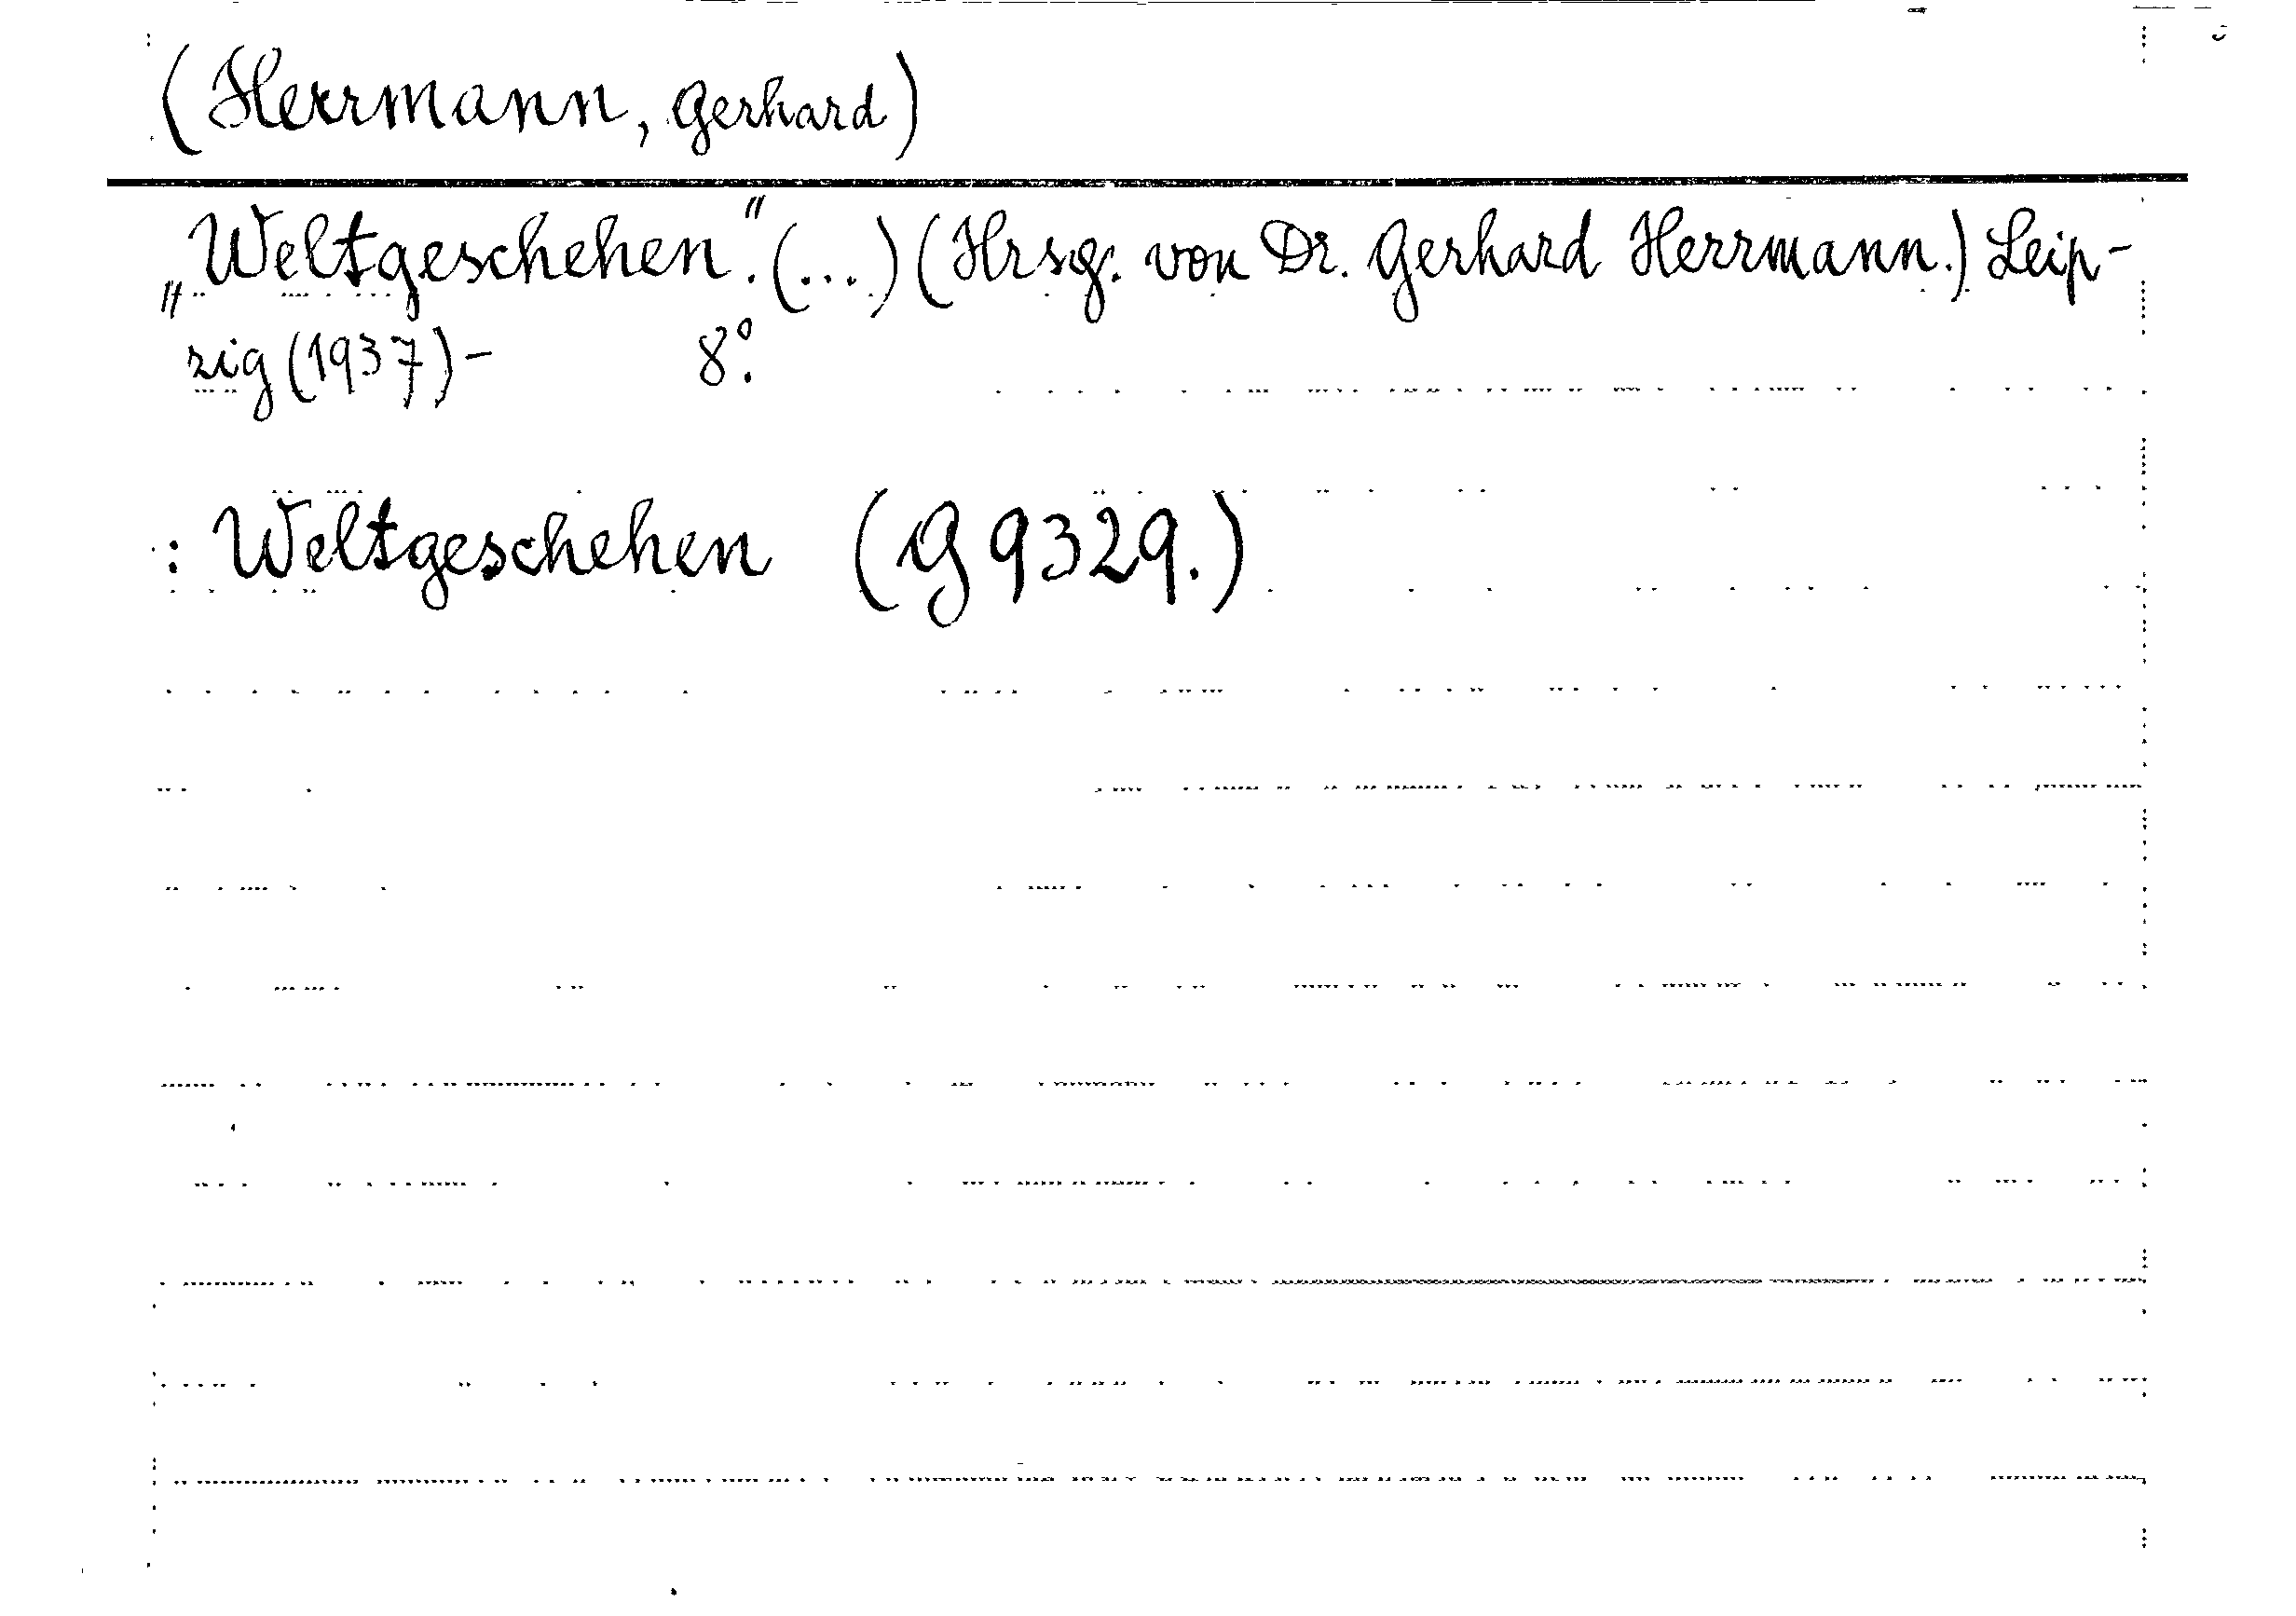 (Herrmann, Gerhard)
„Weltgeschehen." (...) (Hrsg. von Dr. Gerhard Herrmann.) Leip-
zig (1937)- 8°.
: Weltgeschehen (G 9329.)